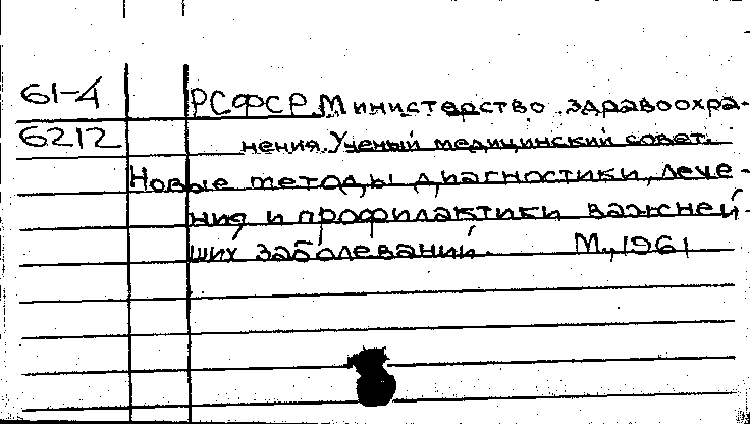 61-4 РСФСР. Министерство здравоохра-
6212 нения. Ученый медицинский совет.
Новые методы диагностики, лече-
ния и профилактики важней-
ших заболеваний. М., 1961